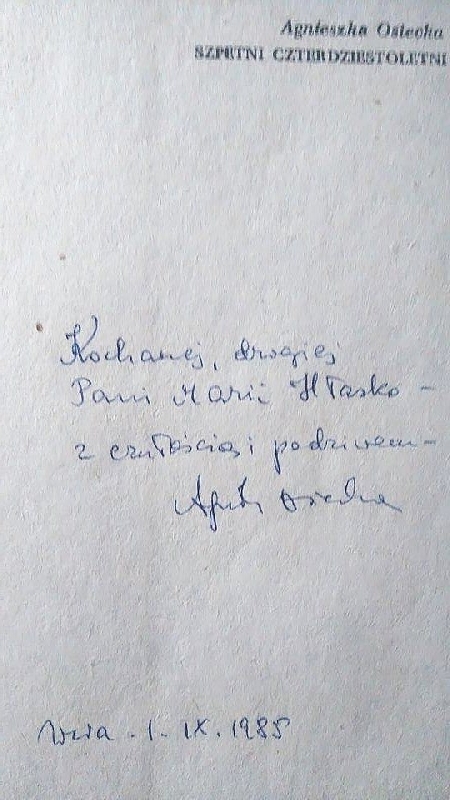 Agnieszka Osiecka
SZPETNI CZTERDZIESTOLETNI
Kochanej, drogiej
Pani Marii Hłasko –
z czułością i podziwem –
Osiecka
1. IX. 1985